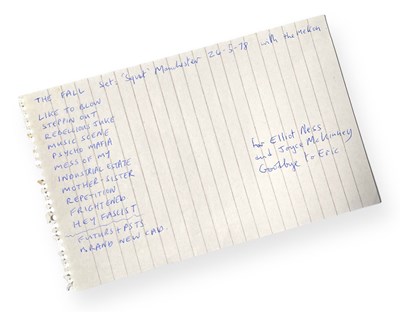 THE FALL Set. "Squat" Manchester 26-5-78 with the Mekon
LIKE TO BLOW
STEPPIN OUT
REBELLIOUS JUKE
MUSIC SCENE
PSYCHO MAFIA
MESS OF MY
INDUSTRIAL ESTATE
MOTHER - SISTER
REPETITION
FRIGHTENED
HEY FASCIST
FUTURS + PSTS
BRAND NEW CAD.
for Elliot Ness
and Joyce McKinney
Goodbye to Eric